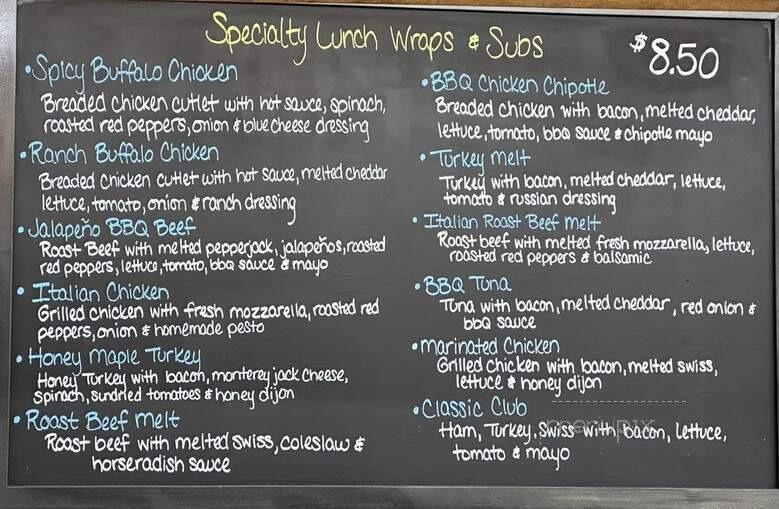 Specialty Lunch Wraps & Subs
$8.50
•Spicy Buffalo Chicken
Breaded chicken cutlet with hot sauce, spinach,
roasted red peppers, onion & blue cheese dressing
•Ranch Buffalo Chicken
Breaded chicken cutlet with hot sauce, melted cheddar
lettuce, tomato, onion & ranch dressing
•Jalapeño BBQ Beef
Roast Beef with melted pepperjack, jalapeños, roasted
red peppers, lettuce, tomato, bbq sauce & mayo
• Italian Chicken
Grilled chicken with fresh mozzarella, roasted red
peppers, onion & homemade pesto
•Honey Maple Turkey
Honey Turkey with bacon, monterey jack cheese,
spinach, sundried tomatoes & honey dijon
• Roast Beef melt
Roast beef with melted swiss, coleslaw &
horseradish sauce
•BBQ Chicken Chipotle
Breaded chicken with bacon, melted cheddar,
lettuce, tomato, bbq sauce & chipotle mayo
• Turkey melt
Turkey with bacon, melted cheddar, lettuce,
tomato & russian dressing
• Italian Roast Beef melt
Roast beef with melted fresh mozzarella, lettuce,
roasted red peppers & balsamic
•BBQ Tuna
Tuna with bacon, melted cheddar, red onion &
bbq sauce
•marinated Chicken
Grilled chicken with bacon, melted swiss,
lettuce & honey dijon
•Classic Club
Ham, Turkey, Swiss with bacon, lettuce,
tomato & mayo
menupix